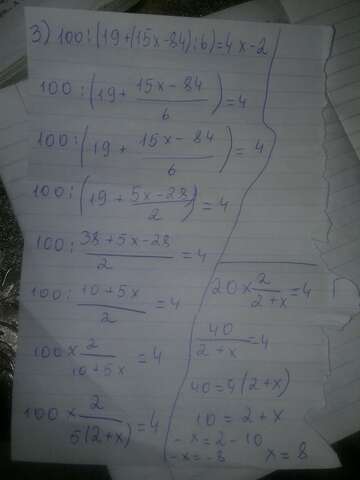 3) 100:(19+(15x-84):6)=4 x-2
100:(19+ \frac{15x-84}{6})=4
100:(19+ \frac{15x-84}{6})=4
100:(19+ \frac{5x-28}{2})=4
100: \frac{38+5x-28}{2}=4
100: \frac{10+5x}{2}=4
100 x \frac{2}{10+5x} =4
100 x \frac{2}{5(2+x)}=4
20 x \frac{2}{2+x}=4
\frac{40}{2+x}=4
40=4(2+x)
10=2+x
-x=2-10
-x=-8 x=8